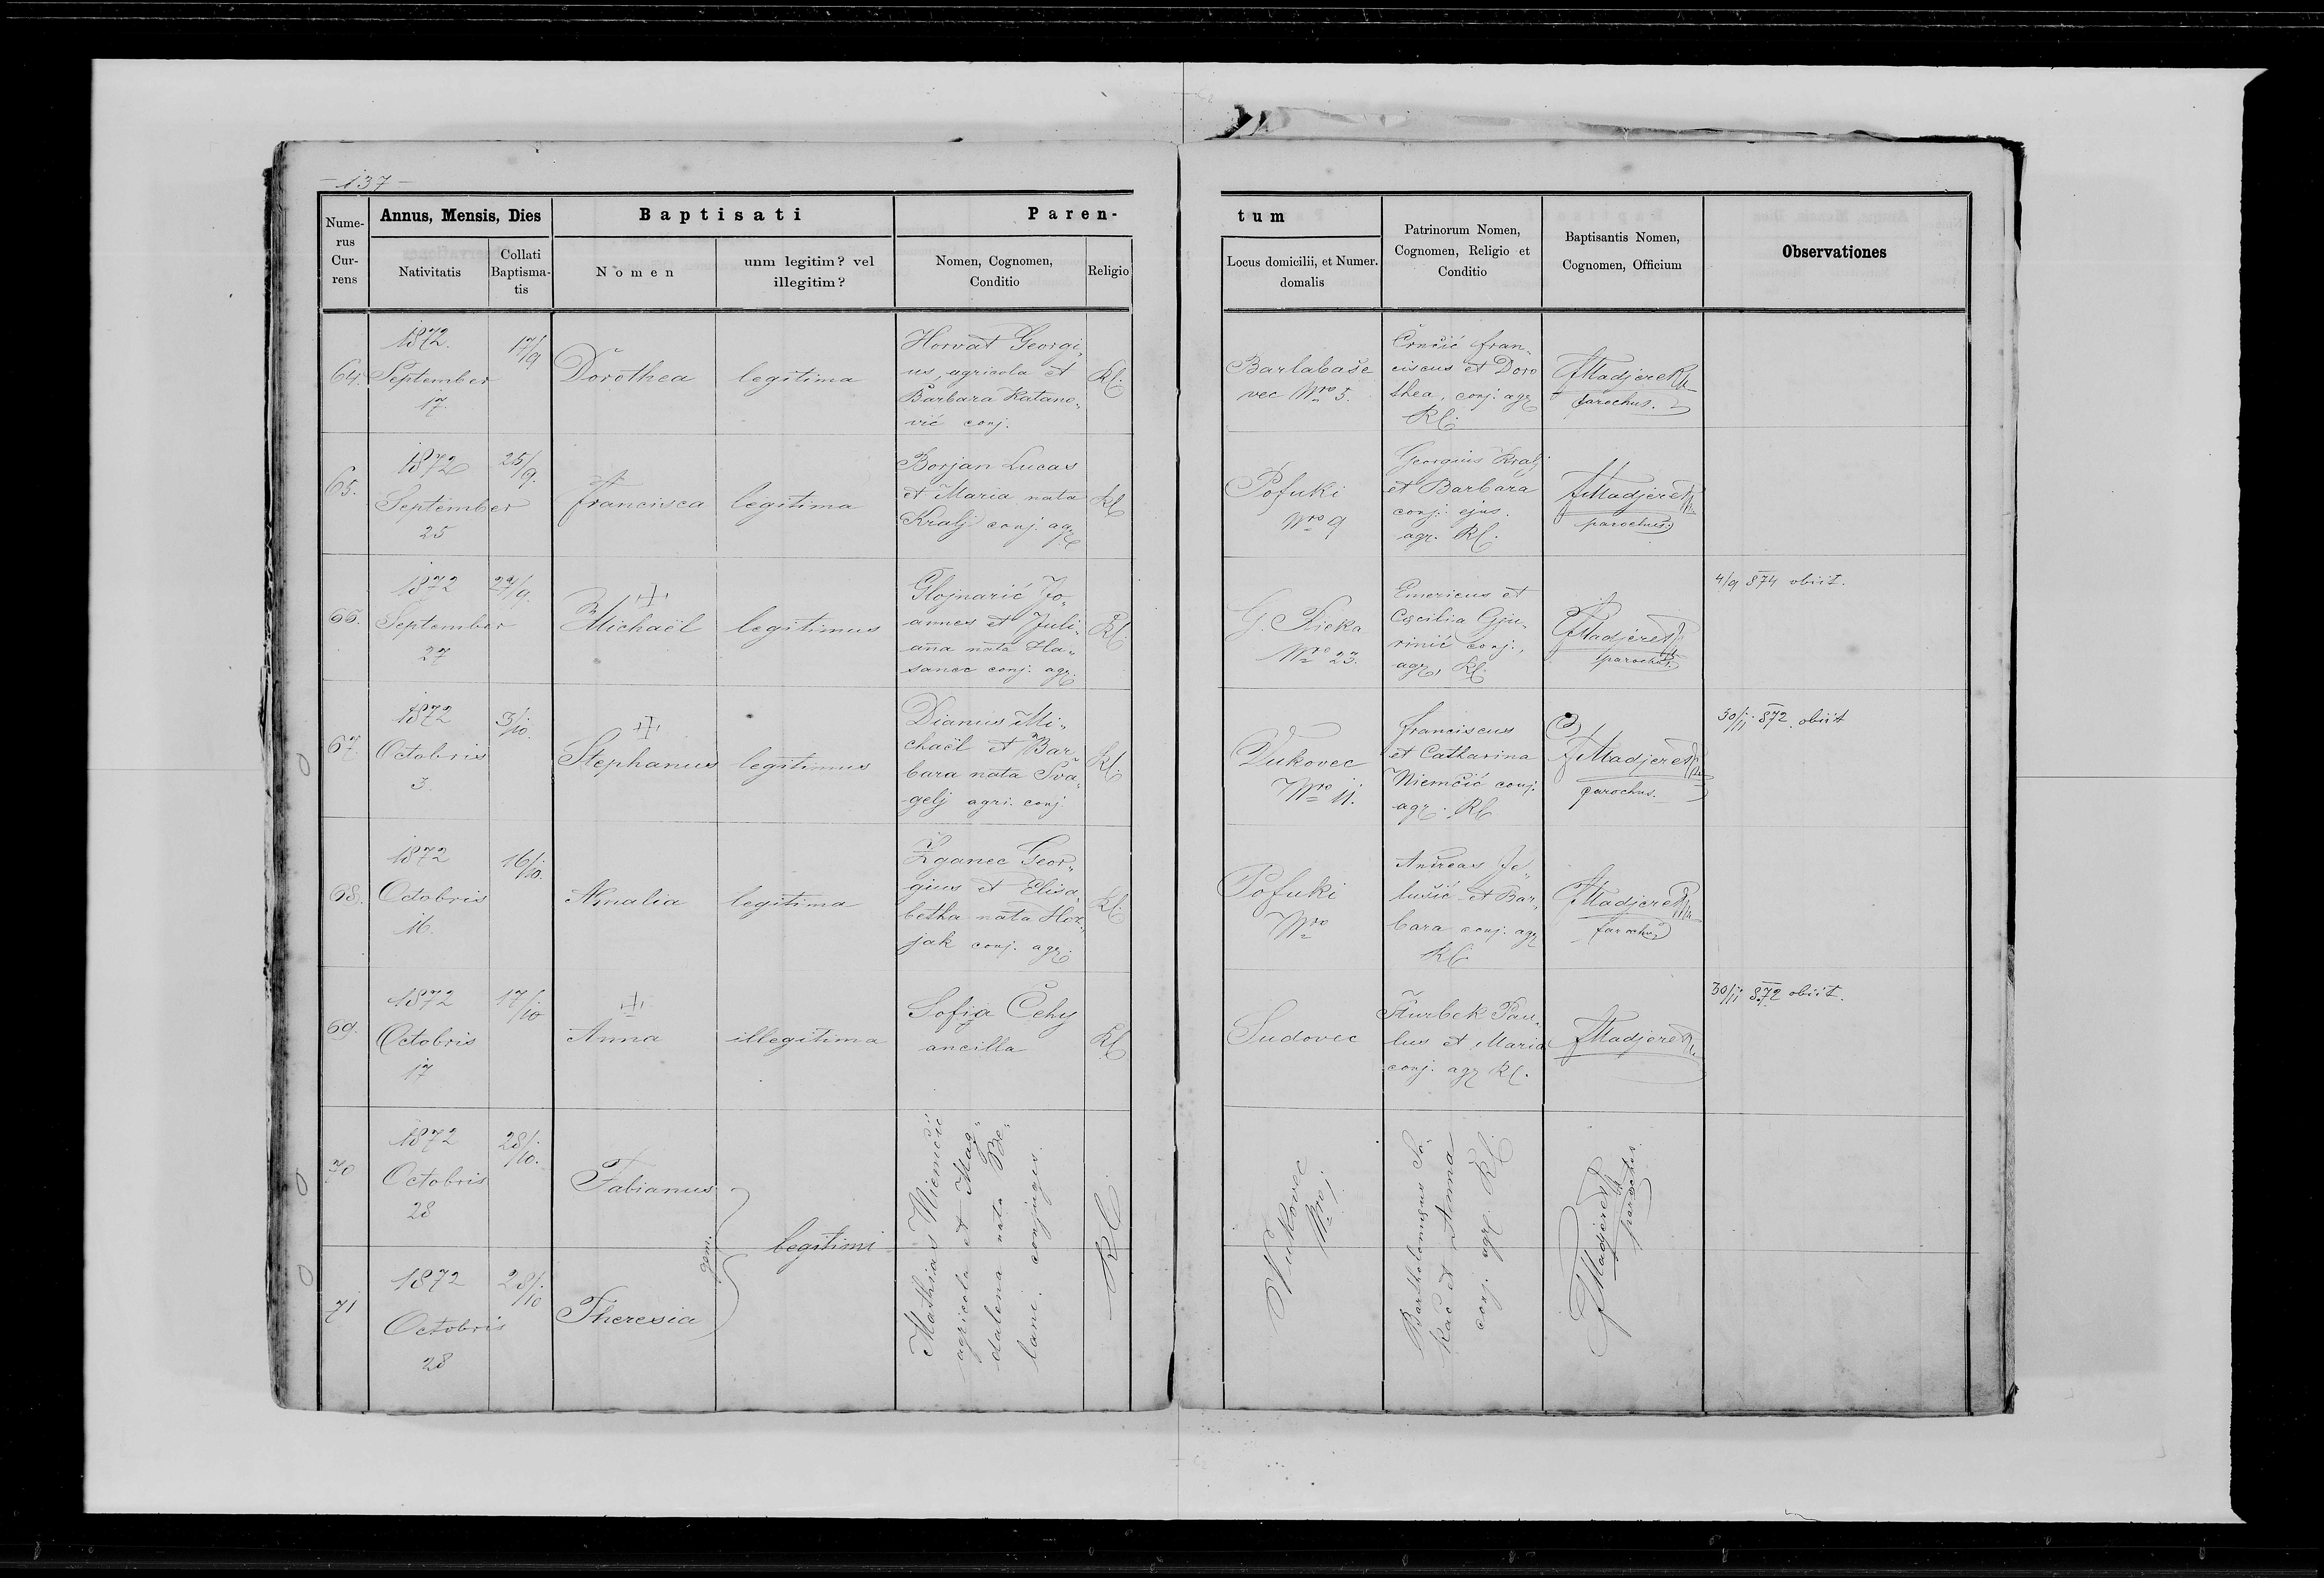 - 137 -
Nume-
rus
Cur-
rens
Annus, Mensis, Dies
Nativitatis
Collati
Baptisma-
tis
Baptisati
Nomen
unm legitim? vel
illegitim?
Paren-
Nomen, Cognomen,
Conditio
Religio
tum
Locus domicilii, et Numer.
domalis
Patrinorum Nomen,
Cognomen, Religio et
Conditio
Baptisantis Nomen,
Cognomen, Officium
Observationes
64.
1872.
September
17.
17/9
Dorothea
legitima
Horvat Georgi„
us, agricola et
Barbara Katano„
vić conj.
RC.
Barlabaše
vec Nro 5.
Črnčić Fran„
ciscus et Doro
thea, conj. agr
RC.
FMadjerek
parochus.
65.
1872
September
25
25/9.
Francisca
legitima
Borjan Lucas
et Maria nata
Kralj conj. agr.
RC
Pofuki
Nro 9
Georgius Kralj
et Barbara
conj. ejus.
agr. RC.
FMadjerek
parochus.
66.
1872
September
27
27/9.
Michaël
legitimus
Glojnarić Jo„
annes et Juli„
ana nata Ha„
sanec conj. agr.
RC.
G. Rieka
Nro 23.
Emericus et
Cæcilia Gju„
rinić conj.,
agr, RC.
FMadjerek
parochus.
4/9 874 obiit.
67.
1872
Octobris
3.
3/10.
Stephanus
legitimus
Dianus Mi„
chaël et Bar„
bara nata Šva„
gelj agri. conj.
RC.
Vukovec
Nro 11.
Franciscus
et Catharina
Niemčić conj.
agr. RC
FMadjerek
parochus.
30/11 872. obiit
68.
1872
Octobris
16.
16/10.
Amalia
legitima
Žganec Geor„
gius et Elisa„
betha nata Hor„
jak conj. agr.
RC.
Pofuki
Nro
Andreas Je„
lušić et Bar„
bara conj. agr
RC.
FMadjerek
parochus
69.
1872
Octobris
17
17/10
Anna
illegitima
Sofia Čehy
ancilla
RC
Sudovec
Šturbek Pau„
lus et Maria
conj. agr RC.
FMadjerek
30/11 872 obiit.
70
1872
Octobris
28
28/10.
Fabianus
gem.
legitimi
Mathias Niemčić
agricola et Mag„
dalena nata Be„
lani. conjuges.
RC.
Vukovec
Nro 1.
Bartholomæus So„
kač et Anna
conj. agr. RC.
FMadjerek
parochus.
71
1872
Octobris
28
28/10
Theresia